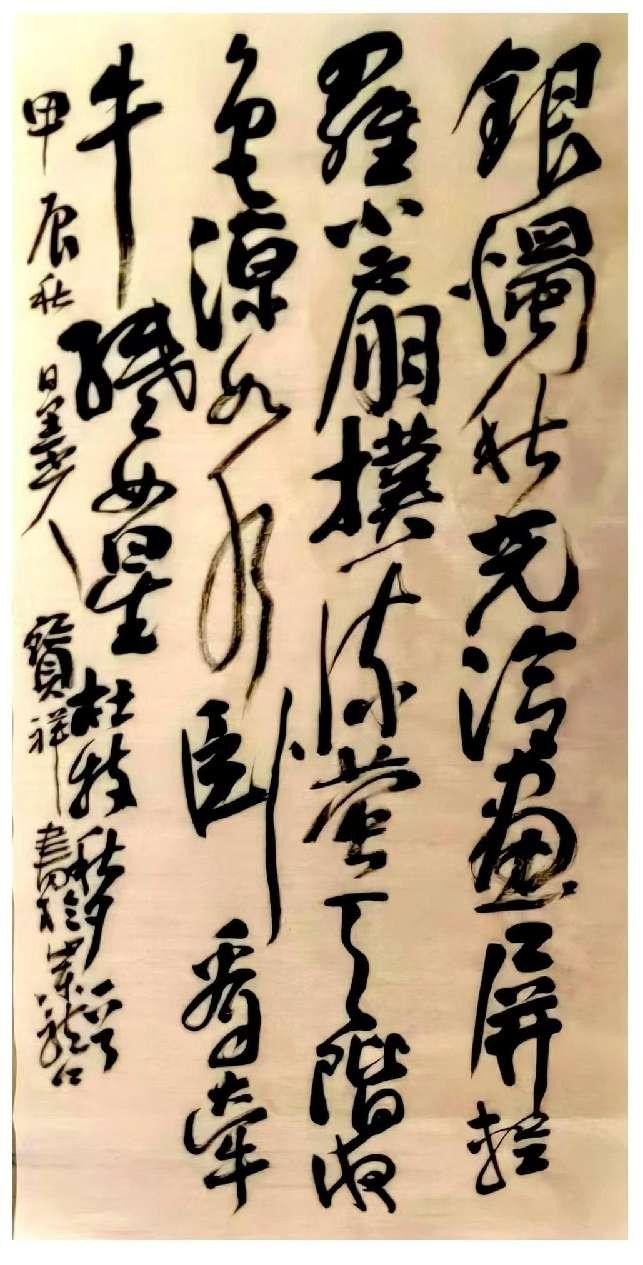 銀燭秋光冷畫屏輕
羅小扇撲流螢天階夜
色涼如水卧看牽
牛織女星杜牧秋夕
甲辰秋日寶祥書於